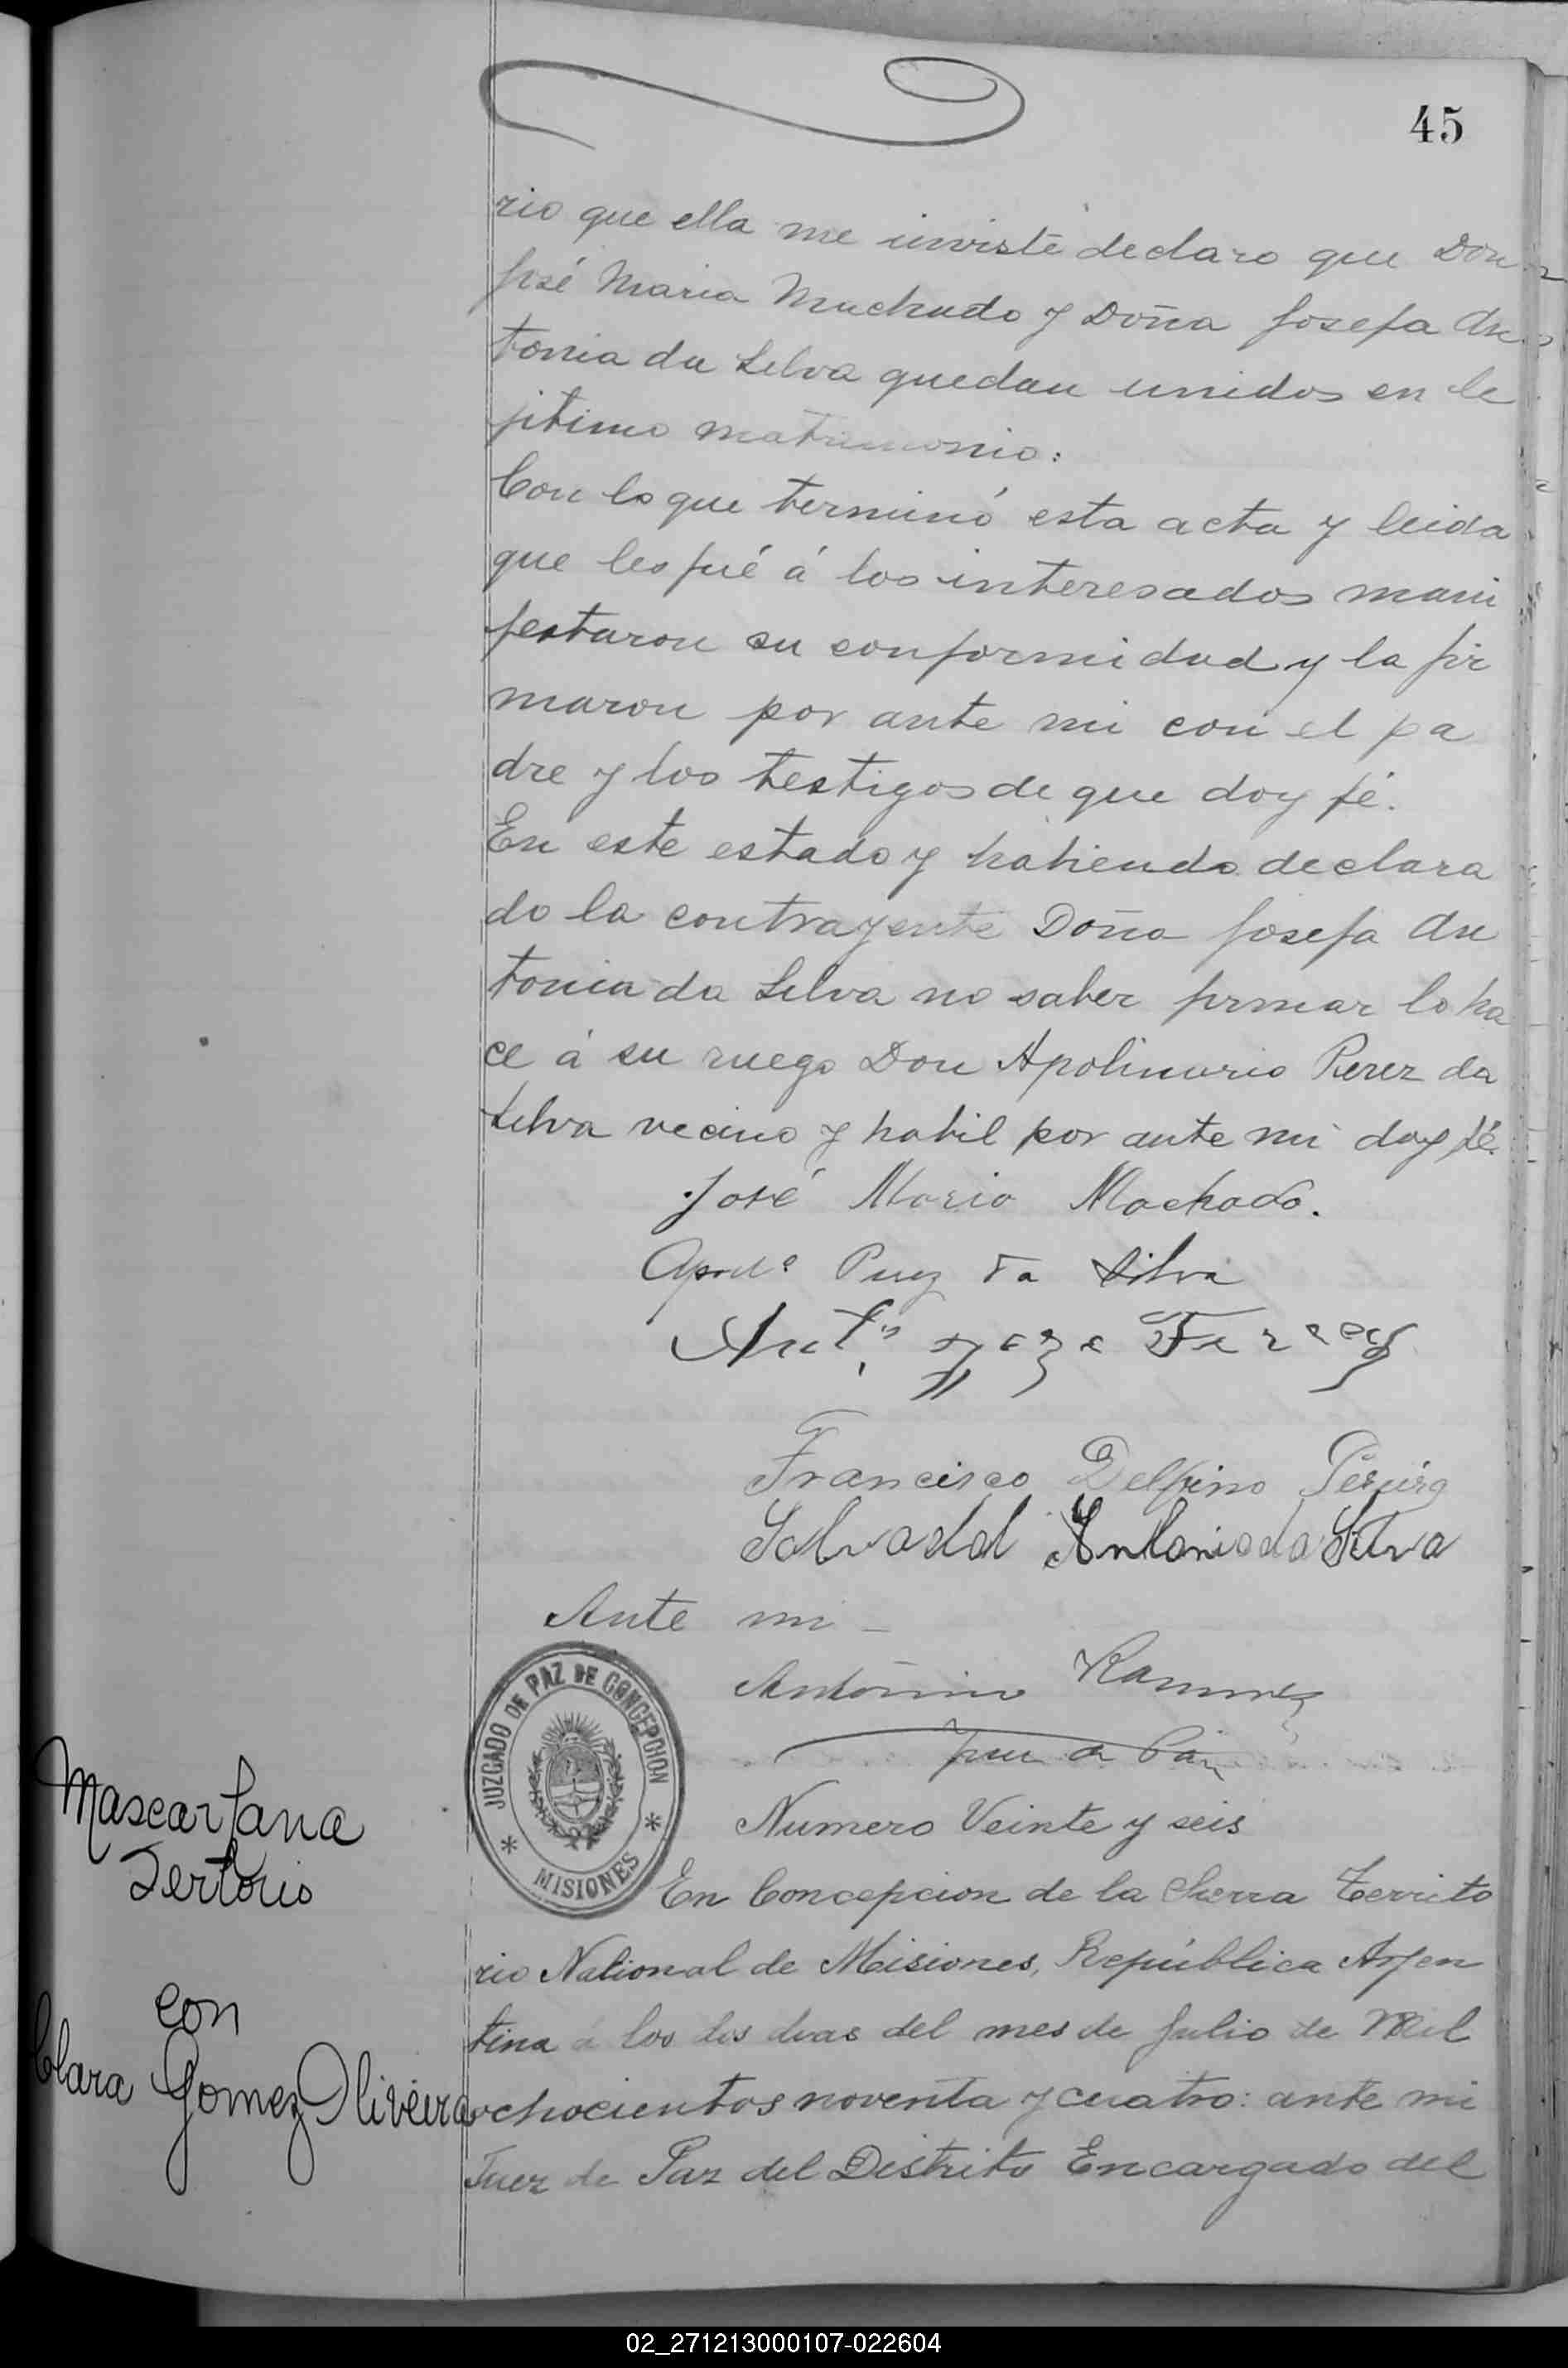 45
rio que ella me inviste declaro que Don
José Maria Machado y Doña Josefa An
tonia da Silva quedan unidos en le
jitimo matrimonio:
Con lo que terminó esta acta y leida
que les fué á los interesados mani
festaron su conformidad y la fir
maron por ante mi con el pa
dre y los testigos de que doy fé.
En este estado y habiendo declara
do la contrayente Doña Josefa An
tonia da Silva no saber firmar lo ha
ce á su ruego Don Apolinario Perez da
Silva vecino y habil por ante mi doy fé.
José Maria Machado.
da Silva
Francisco Delfino Pereira
Salvadol Antonio da Silva
Ante mi
Antonino Ramirez
Juez de Paz
JUZGADO DE PAZ DE CONCEPCION
* MISIONES *
Numero Veinte y seis
Mascartana
Sertorio
con
Clara Gomez Oliveira
En Concepcion de la Sierra Territo
rio National de Misiones, República Arjen
tina á los dos dias del mes de Julio de Mil
ochocientos noventa y cuatro: ante mi
Juez de Paz del Distrito Encargado del
02_271213000107-022604